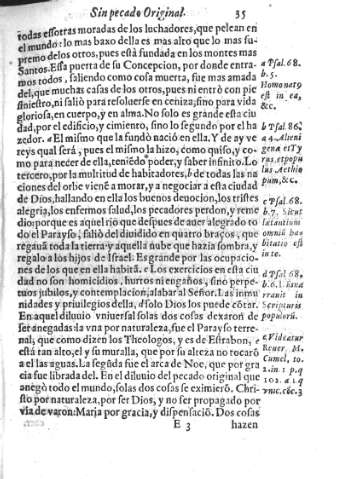 Sin pecado Original. 35
todas essotras moradas de los luchadores, que pelean en
el mundo: lo mas baxo della es mas alto que lo mas su-
premo de los otros, pues està fundada en los montes mas
Santos. Essa puerta de su Concepcion, por donde entra-
mos todos, saliendo como cosa muerta, fue mas amada
del, que muchas casas de los otros, pues ni entrò con pie
siniestro, ni saliò para resoluerse en ceniza, sino para vida
gloriosa, en cuerpo, y en alma. No solo es grande esta ciu
dad, por el edificio, y cimiento, sino lo segundo por el ha
zedor. a El mismo que la fundò naciò en ella, Y de ay ve
reys qual serà, pues el mismo la hizo, como quiso, y co-
mo para nacer de ella, teniẽdo poder, y saber infinito. Lo
tercero, por la multitud de habitadores, b de todas las na
ciones del orbe vienẽ a morar, y a negociar a esta ciudad
de Dios, hallando en ella los buenos deuocion, los tristes
alegria, los enfermos salud, los pecadores perdon, y reme
dio: porque es aquel rio que despues de auer alegrado to
do el Parayso, saliò del diuidido en quatro braços, que
regauã toda la tierra y aquella nube que hazia sombra, y
regalo a los hijos de Israel. Es grande por las ocupacio-
nes de los que en ella habitã. c Los exercicios en esta ciu
dad no son homicidios, hurtos ni engaños, sino perpe-
tuos jubilos, y contemplacion, alabar al Señor. Las inmu
nidades y priuilegios della, d solo Dios los puede cõtar.
En aquel diluuio vniuersal solas dos cosas dexaron de
ser anegadas: la vna por naturaleza, fue el Parayso terre-
nal; que como dizen los Theologos, y es de Estrabon, e
està tan alto, el y su muralla, que por su alteza no tocarõ
a el las aguas. La segũda fue el arca de Noe, que por gra
cia fue librada del. En el diluuio del pecado original que
anegò todo el mundo, solas dos cosas se eximierõ. Chri-
sto por naturaleza, por ser Dios, y no ser propagado por
via de varon: Maria por gracia, y dispensaciõ. Dos cosas
E 3 hazen
a Psal. 68.
b. 5.
Homo natꝰ
est in ea,
&c.
b Psal. 86.
a 4. Alieni
genæ et Ty
rus, et popu
lus Aethio
pum, &c.
c Psal. 68.
b. 7. Sicut
lætantium
omniũ ha-
bitatio est
in te.
d Psal. 68.
b. 6. Dñs
narrauit in
Scripturis
populorũ.
e Videatur